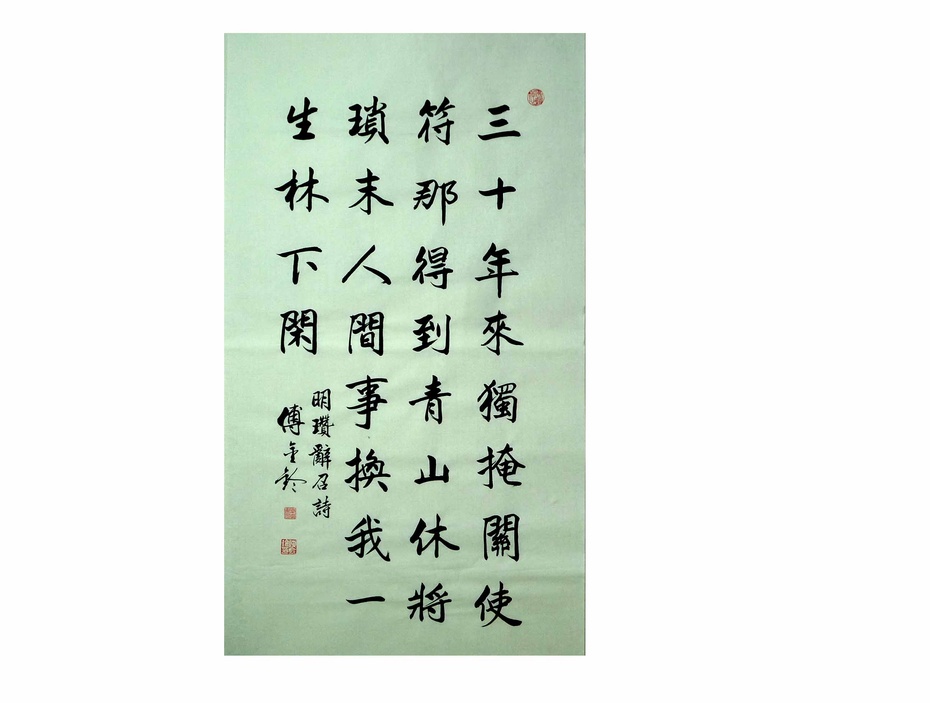 三十年來獨掩關使
符那得到青山休將
瑣末人間事換我一
生林下閑
明瓚辭召詩
傅金鈴